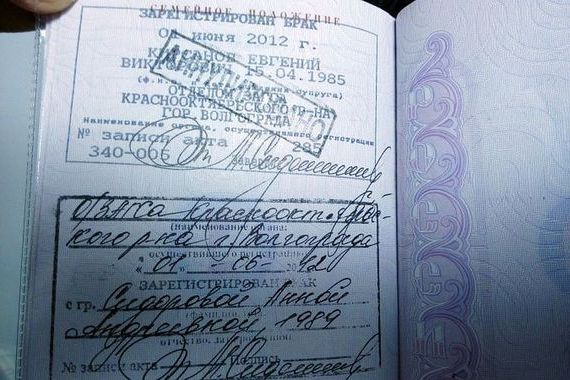 СЕМЕЙНОЕ ПОЛОЖЕНИЕ
ЗАРЕГИСТРИРОВАН БРАК
июня 2012 г.
ЕВГЕНИЙ
ВИКТОРОВИЧ 15.04.1985
ОТДЕЛОМ ЗАГСА
КРАСНООКТЯБРЬСКОГО Р-НА
ГОР. ВОЛГОГРАДА
Наименование органа, осуществившего регистрацию
№ записи акта 285
340-006
ОЗАГСа Краснооктябрьс-
кого р-на г. Волгограда
(наименование органа,
осуществившего регистрацию)
"01" 06 2012
ЗАРЕГИСТРИРОВАН БРАК
с гр. Сидоровой Анной
Андреевной, 1989
отчество, дата рождения
№ записи акта Подпись